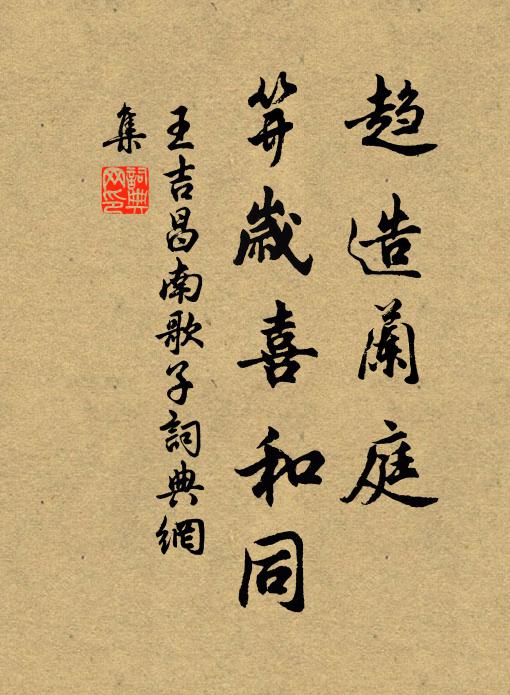 趨造蘭庭
笄歲喜和同
王吉昌南歌子詞典網
集
詞典
网印